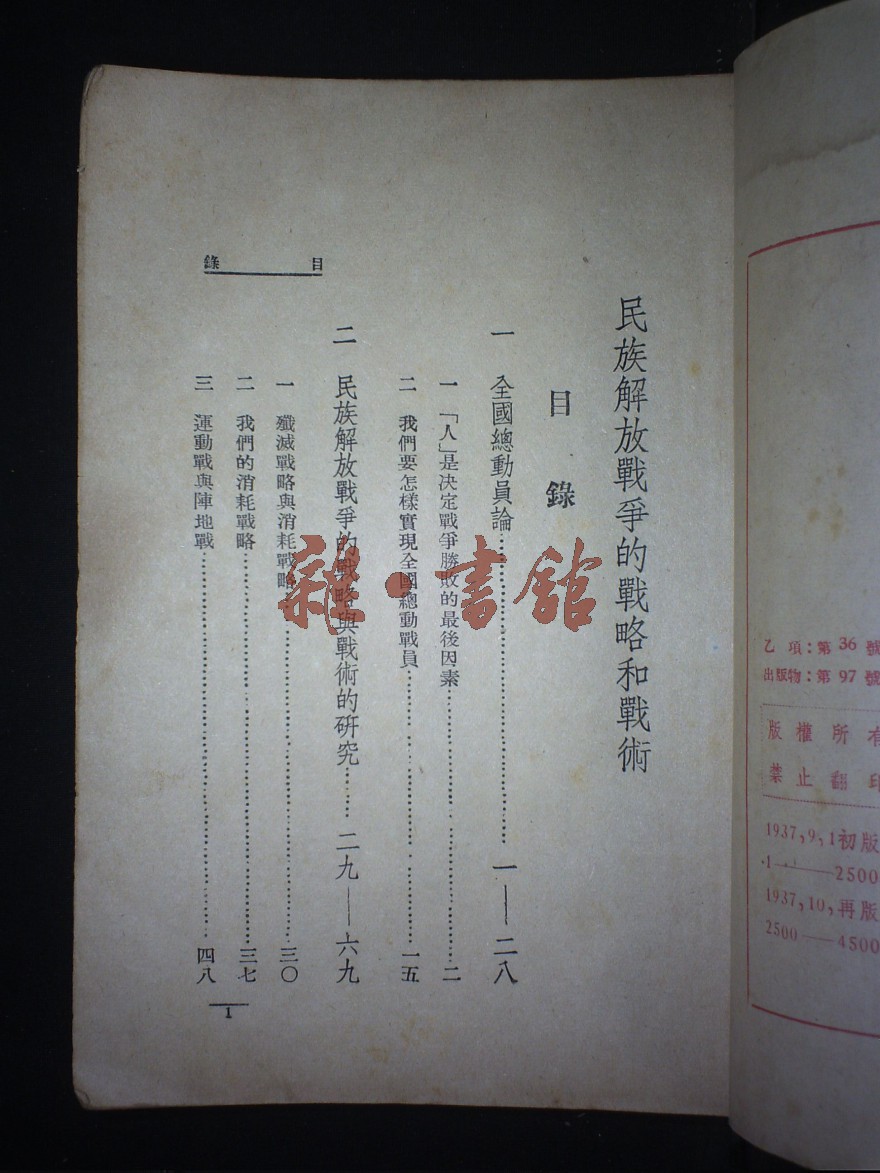 民族解放戰爭的戰略和戰術
目錄
一 全國總動員論……一——二八
一 「人」是決定戰爭勝敗的最後因素……二
二 我們要怎樣實現全國總動戰員……一五
二 民族解放戰爭的戰略與戰術的研究……二九——六九
一 殲滅戰略與消耗戰略……三〇
二 我們的消耗戰略……三七
三 運動戰與陣地戰……四八
目錄
1
乙項：第36號
出版物：第97號
版權所有
禁止翻印
1937,9,1初版
1——2500
1937,10,再版
2500——4500
雜·書館